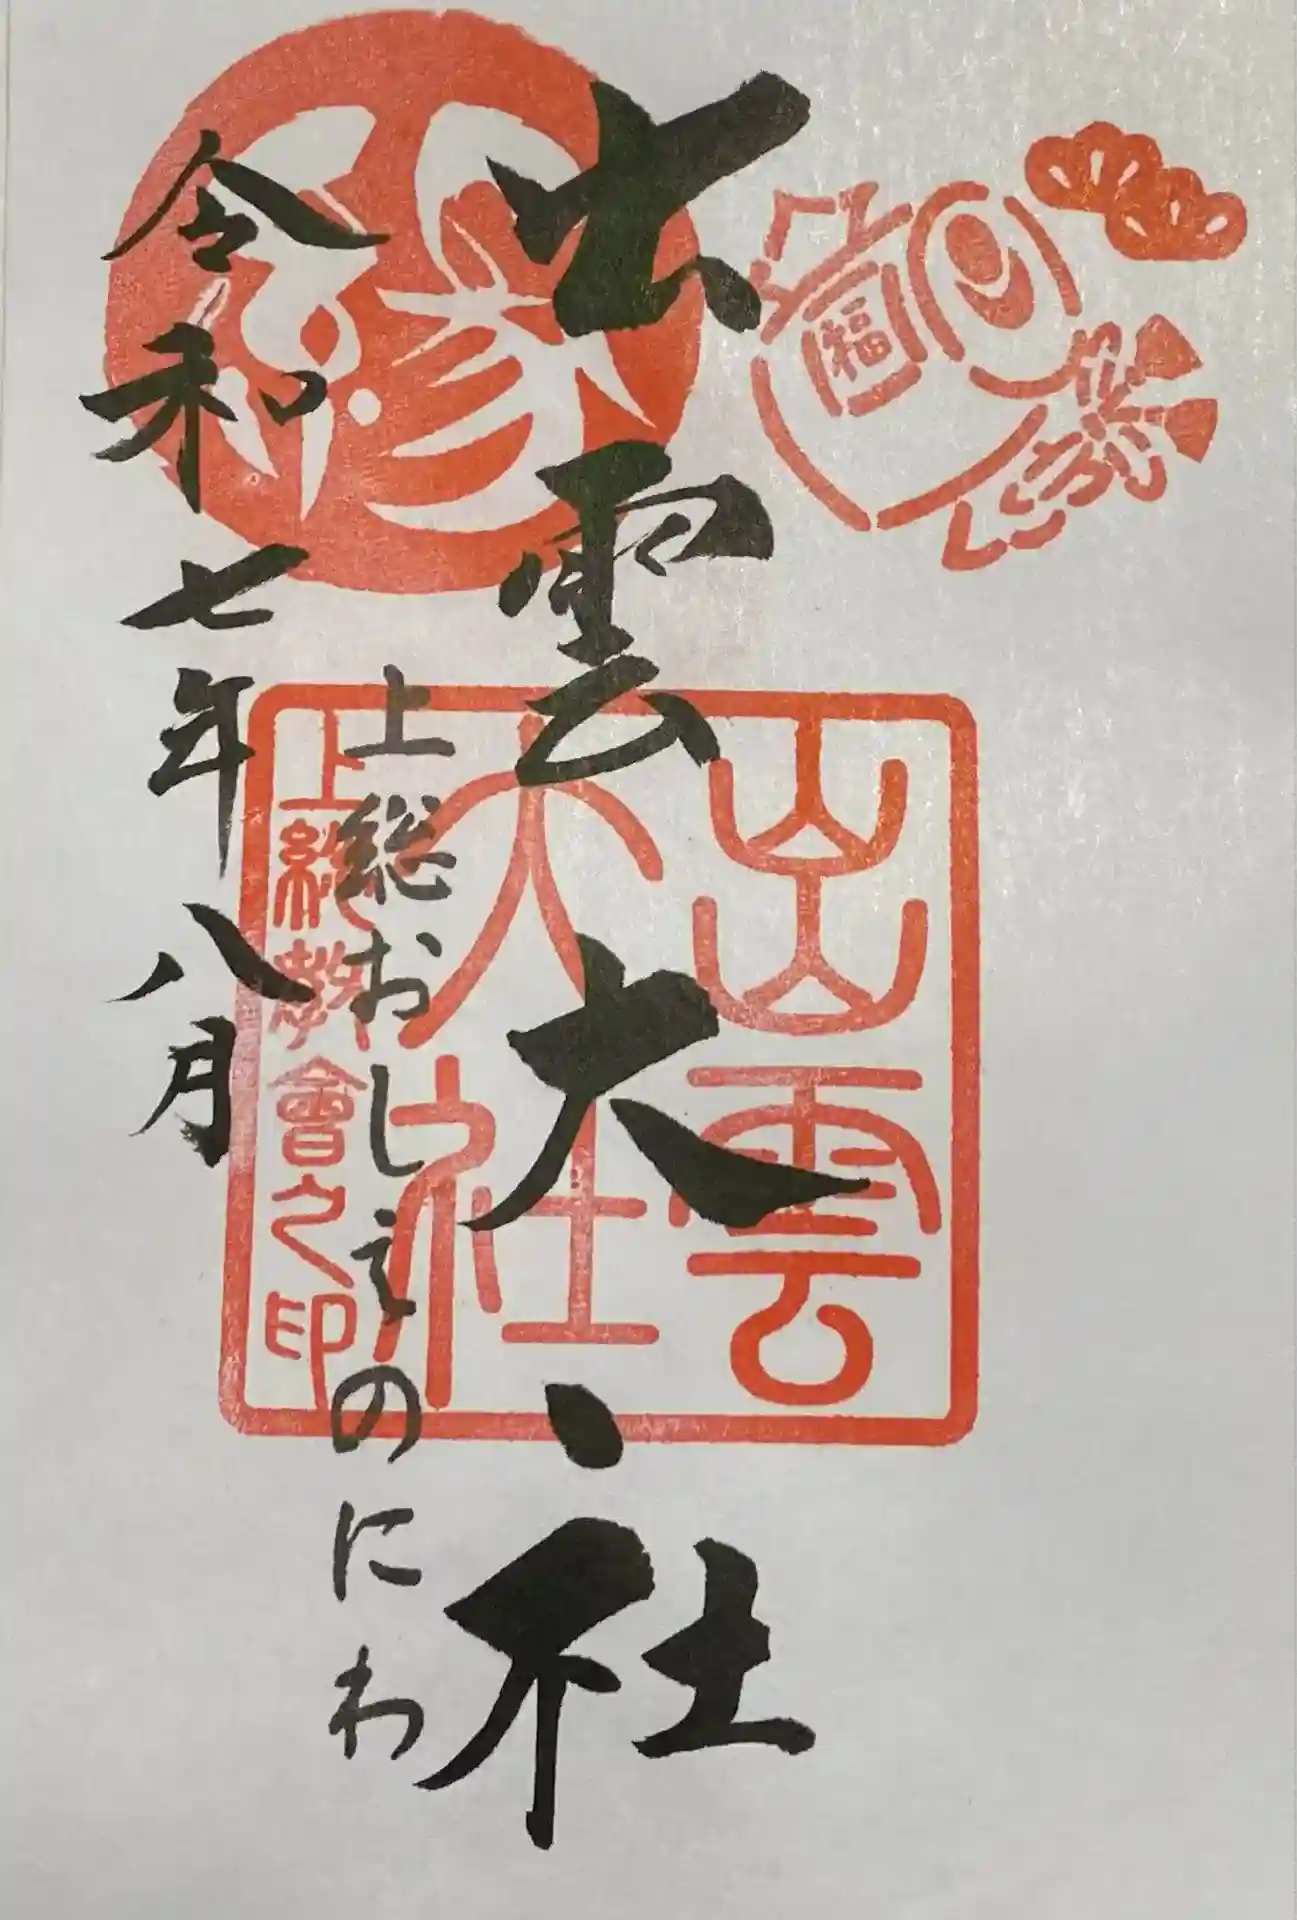 出雲大社
上総おしえのにわ
令和七年八月
福
縁
出雲
大社
上総教會之印